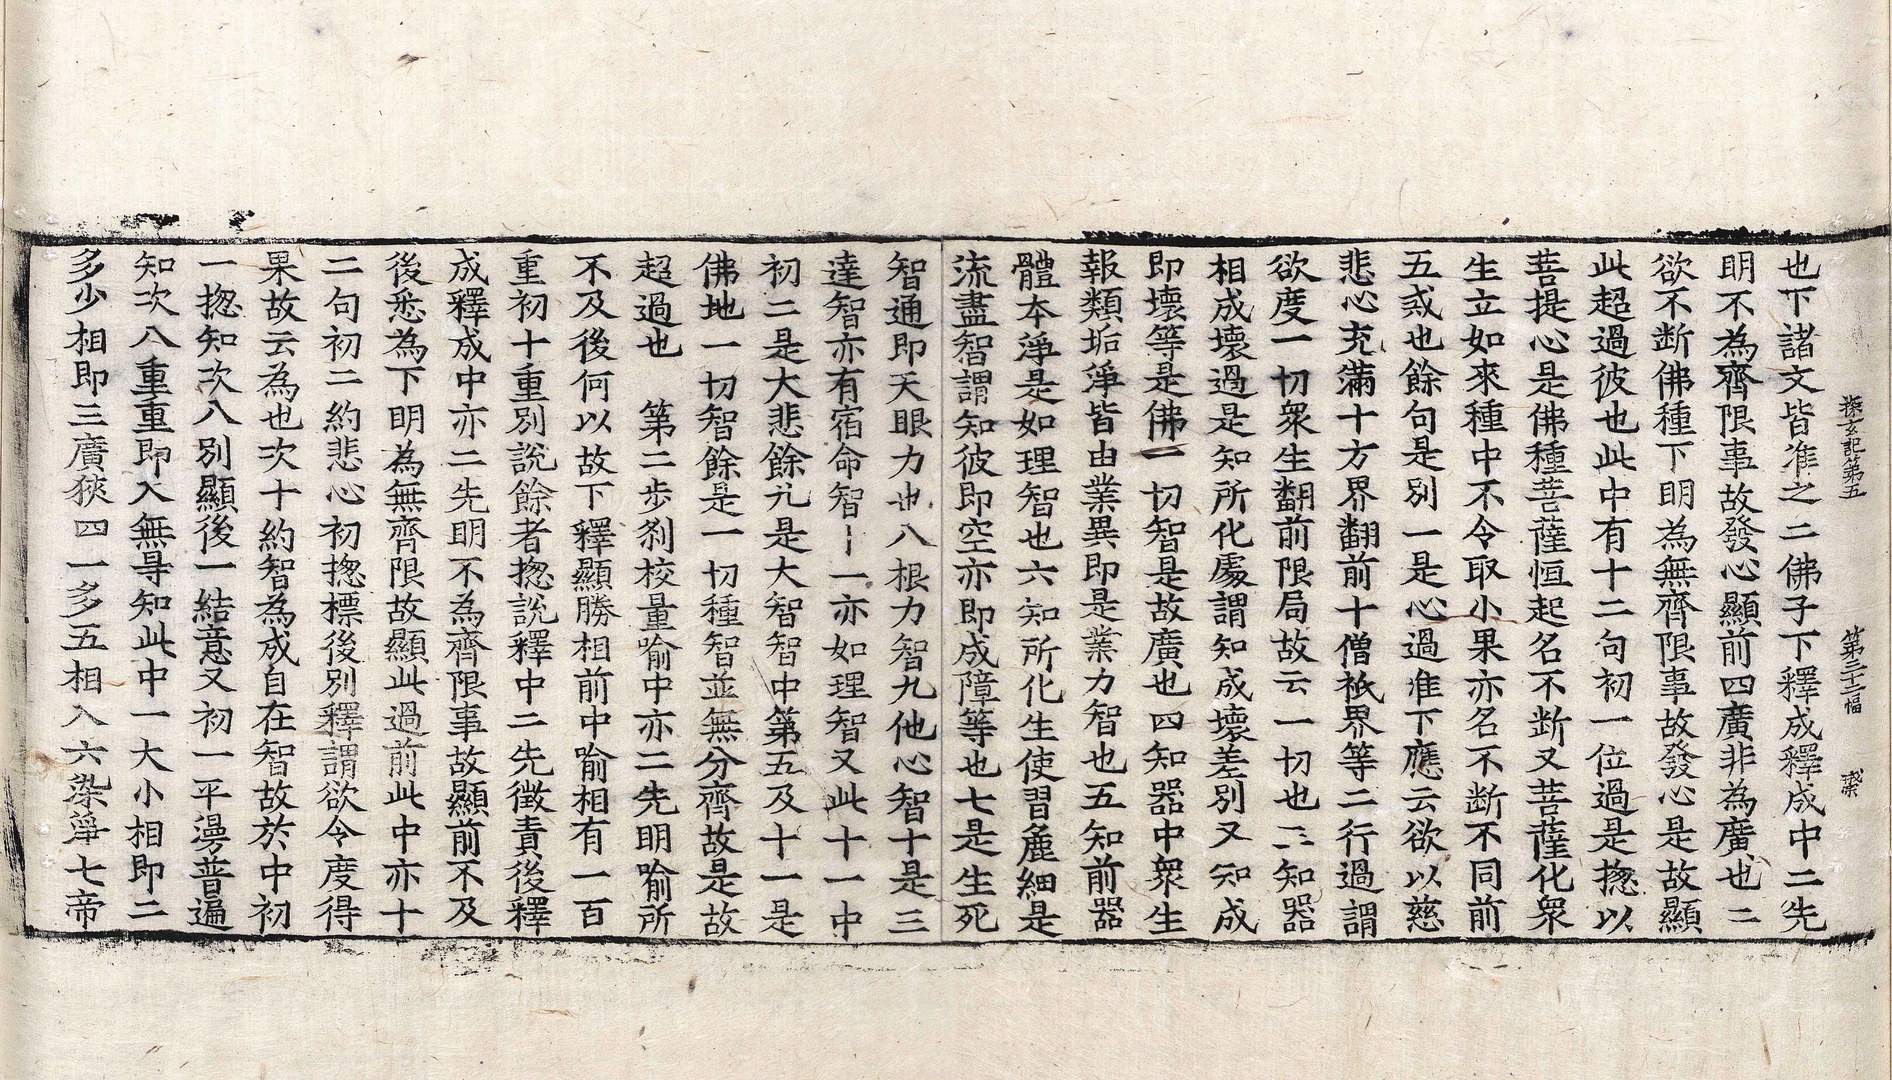 探玄記第五　第三十二幅
也下諸文皆准之二佛子下釋成釋成中二先
明不為齊限事故發心顯前四廣非為廣也二
欲不断佛種下明為無齊限事故發心是故顯
此超過彼也此中有十二句初一位過是揔以
菩提心是佛種菩薩恒起名不断又菩薩化衆
生立如來種中不令取小果亦名不断不同前
五戒也餘句是別一是心過准下應云欲以慈
悲心充滿十方界翻前十僧祇界等二行過謂
欲度一切衆生翻前限局故云一切也三知器
相成壞過是知所化處謂知成壞差別又知成
即壞等是佛一切智是故廣也四知器中衆生
報類垢淨皆由業異即是業力智也五知前器
體本淨是如理智也六知所化生使習麁細是
流盡智謂知彼即空亦即成障等也七是生死
智通即天眼力也八根力智九他心智十是三
達智亦有宿命智十一亦如理智又此十一中
初二是大悲餘九是大智智中第五及十一是
佛地一切智餘是一切種智並無分齊故是故
超過也　第二步剎校量喻中亦二先明喻所
不及後何以故下釋顯勝相前中喻相有一百
重初十重別說餘者揔說釋中二先徵責後釋
成釋成中亦二先明不為齊限事故顯前不及
後悉為下明為無齊限故顯此過前此中亦十
二句初二約悲心初揔標後別釋謂欲令度得
果故云為也次十約智為成自在智故於中初
一揔知次八別顯後一結意又初一平漫普遍
知次八重重即入無㝵知此中一大小相即二
多少相即三廣狹四一多五相入六染淨七帝